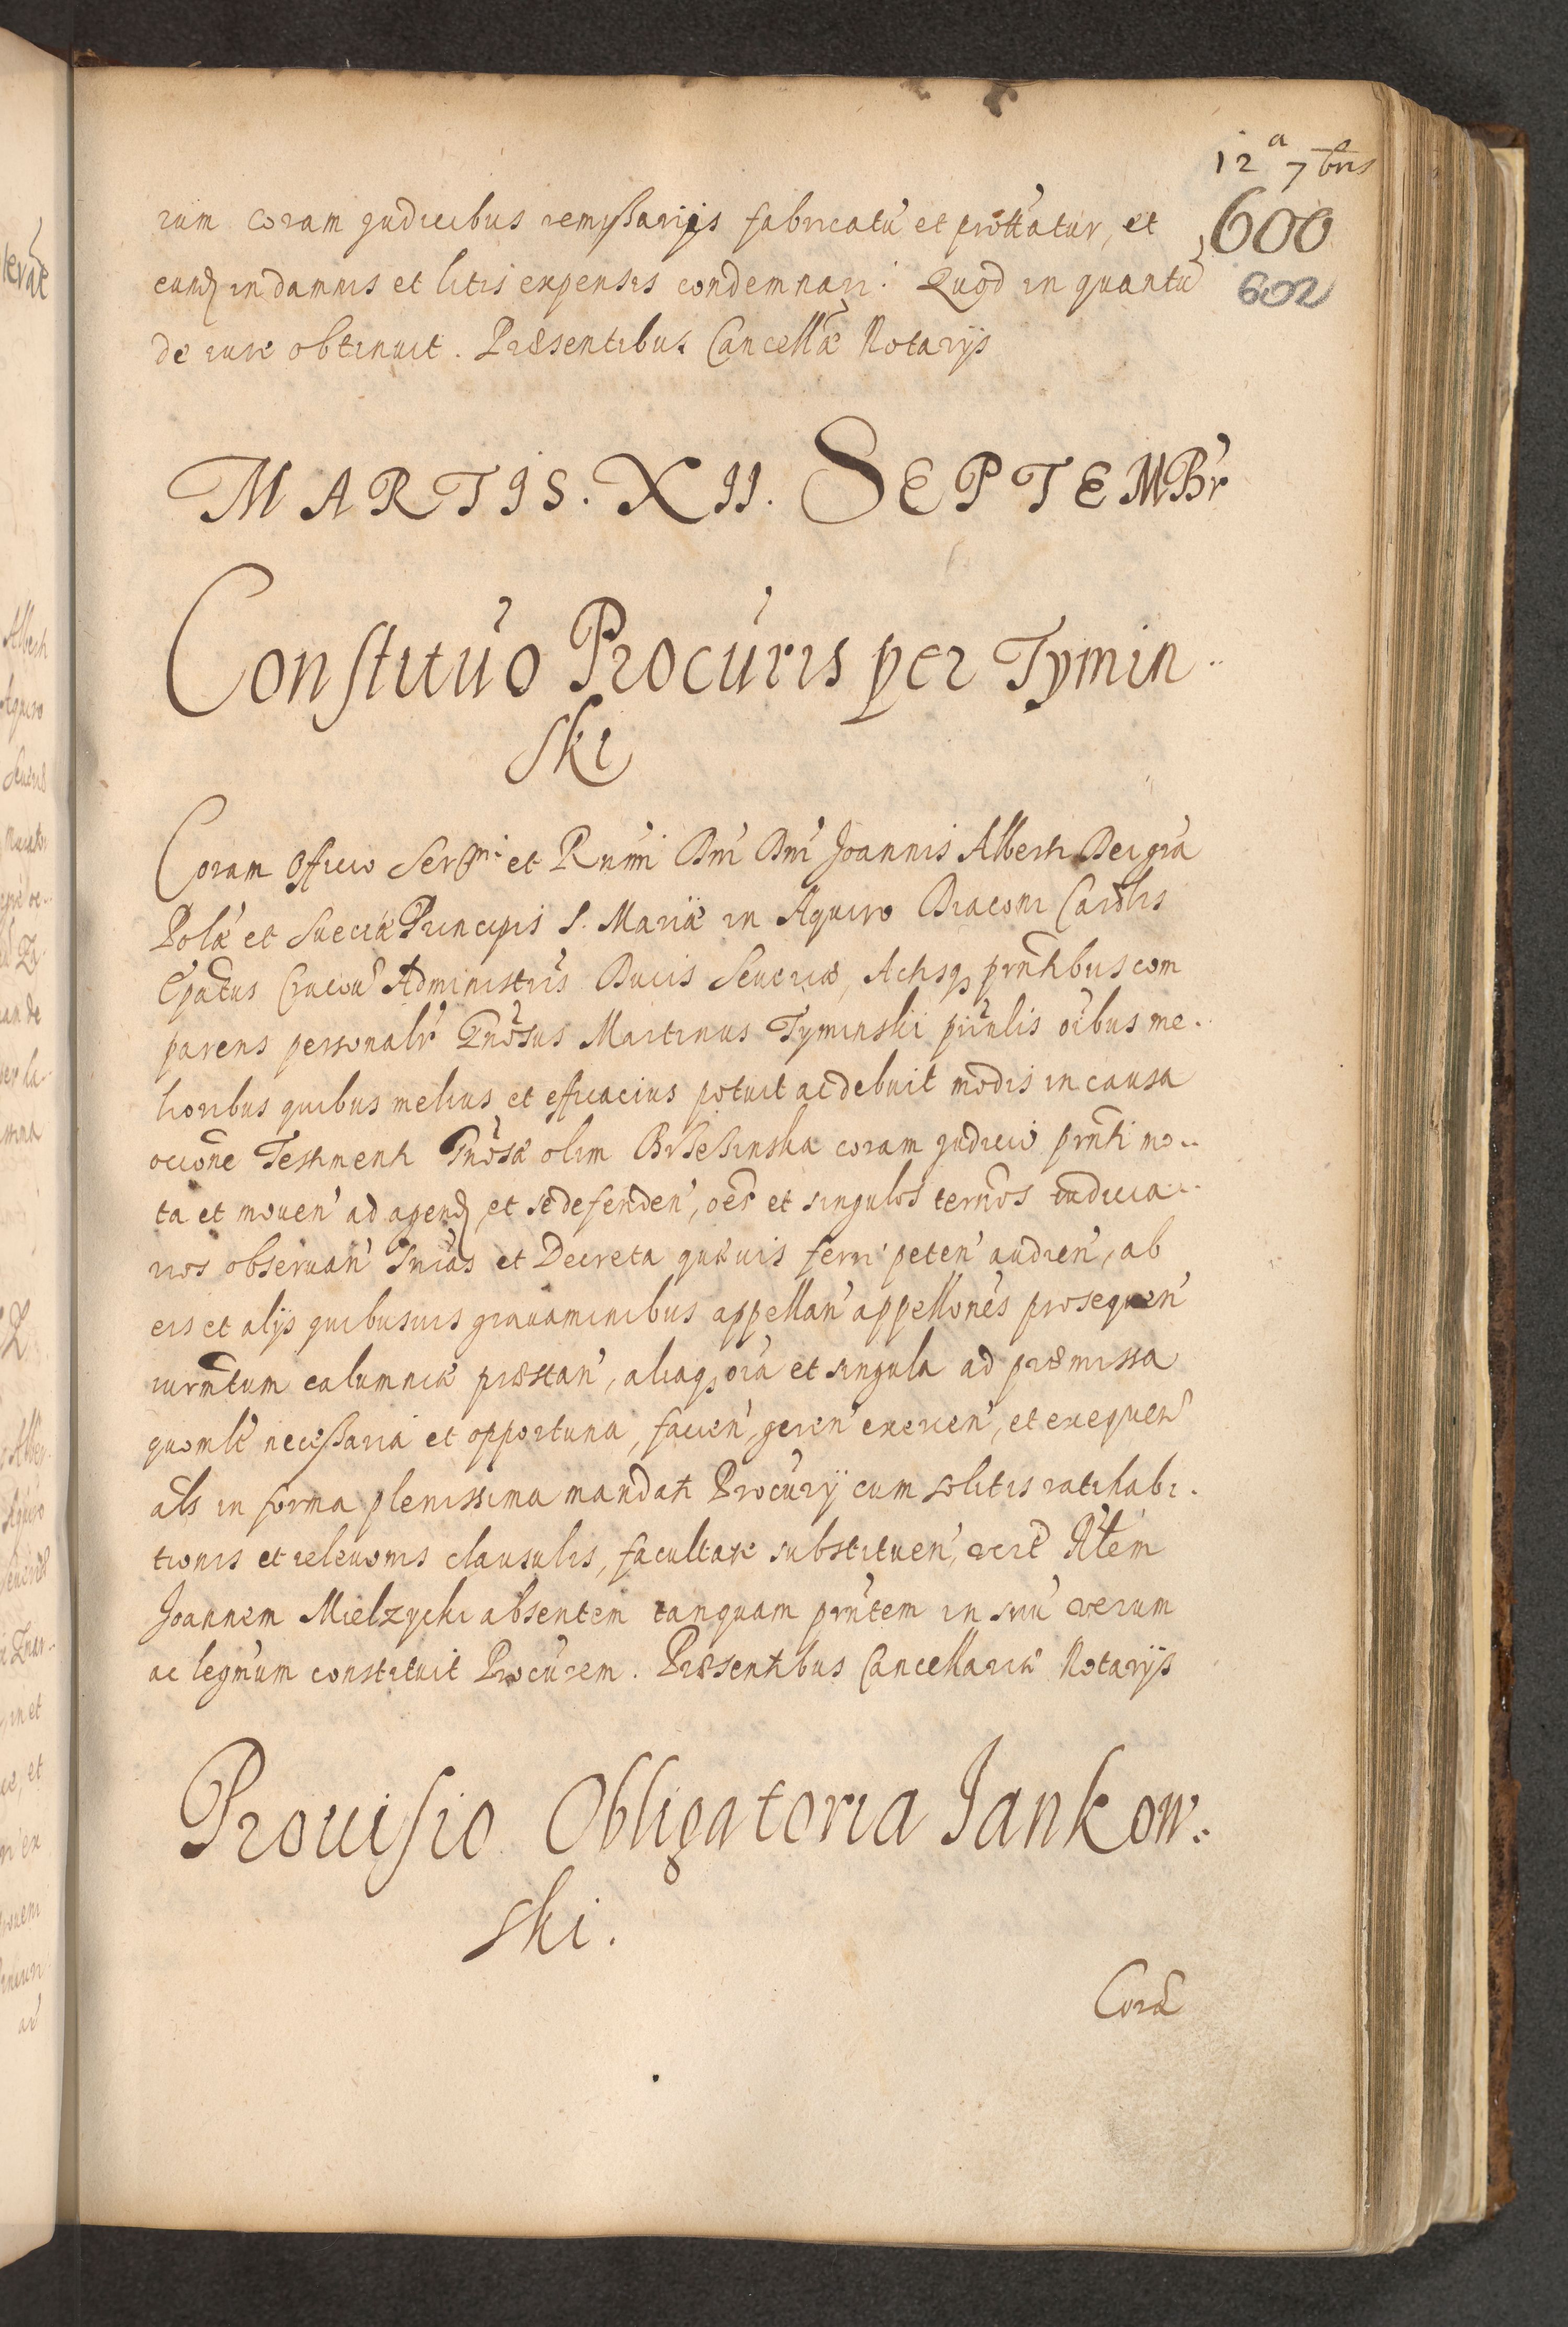 12ᵃ 7bris
600
602
rum coram Judicibus remissarijs fabricatū et prottatur, et
eund in damnis et litis expensis condemnari. Quod in quantū
de iure obtinuit. Præsentibus Cancellæ Notarijs
MARTIS. XII. SEPTEMBr
Constituo Procuris per Tymin..
ski
Coram Officio Sermi et Rnmi Dni Dni Joannis Alberti Dei gra
Polæ et Sueciæ Principis S. Mariæ in Aquiro Diaconi Cardlis
Epatus Cracou Administris Ducis Seueriæ, Actisq prntibus com
parens personalr Gnosus Martinus Tyminski prinlis oibus me..
lioribus quibus melius et efficacius potuit ac debuit modis in causa
occone Testmenti Gnosæ olim coram Judicio prnti mo..
ta et mouen' ad agend, et se defenden', oes et singulos ternos iudicia..
rios obseruan' Snias et Decreta quæuis ferri peten' audien', ab
eis et alijs quibusuis grauaminibus appellan' appellones prosequen'
iurmtum calumniæ præstan', aliaq oia et singula ad præmissa
quomlt necessaria et opportuna, facien', geren' exercen', et exequen'
als in forma plenissima mandati Procurij cum solitis ratihabi..
tionis et releuonis clausulis, facultate substituen', Joannem Mielzycki absentem tanquam prntem in suū verum
ac legmum constituit Procurem. Præsentibus Cancellariæ Notarijs
Prouisio Obligatoria Jankow..
ski.
Corā